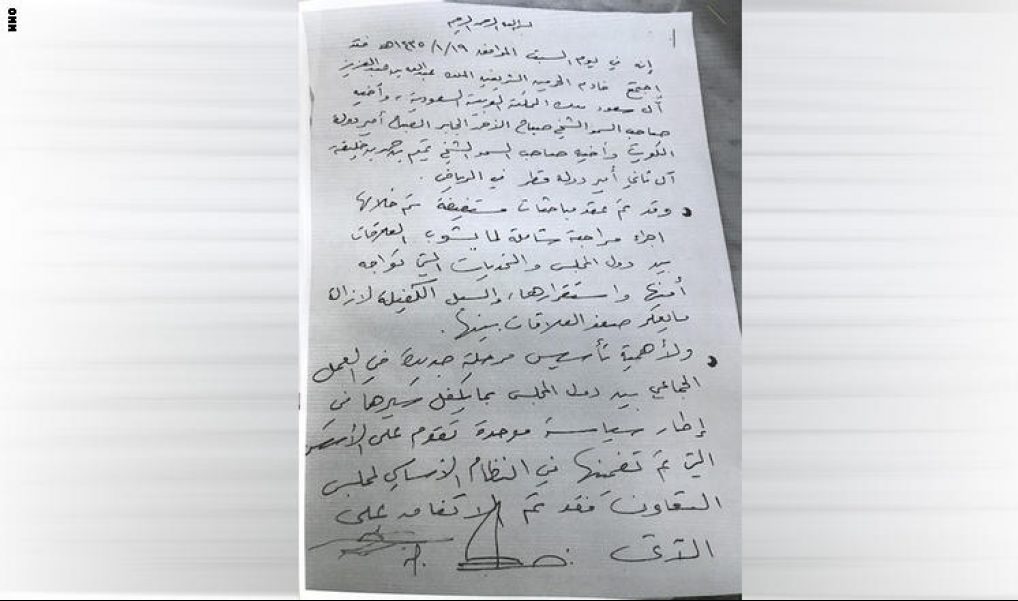 بسم الله الرحمن الرحيم
١
إنه في يوم السبت الموافق ١٤٣٥/١/١٩هـ فقد
اجتمع خادم الحرمين الشريفين الملك عبدالله بن عبدالعزيز
آل سعود ملك المملكة العربية السعودية، وأخيه
صاحب السمو الشيخ صباح الأحمد الجابر الصباح أمير دولة
الكويت وأخيه صاحب السمو الشيخ تميم بن حمد بن خليفة
آل ثاني أمير دولة قطر في الرياض.
وقد تم عقد مباحثات مستفيضة تم خلالها
اجراء مراجعة شاملة لما يشوب العلاقات
بين دول المجلس والتحديات التي تواجه
أمنها واستقرارها، والسبل الكفيلة لازالة
مايعكر صفو العلاقات بينها.
ولأهمية تأسيس مرحلة جديدة في العمل
الجماعي بين دول المجلس بما يكفل سيرها في
إطار سياسة موحدة تقوم على الأسس
التي تم تضمينها في النظام الأساسي لمجلس
التعاون فقد تم الاتفاق على
الآتي